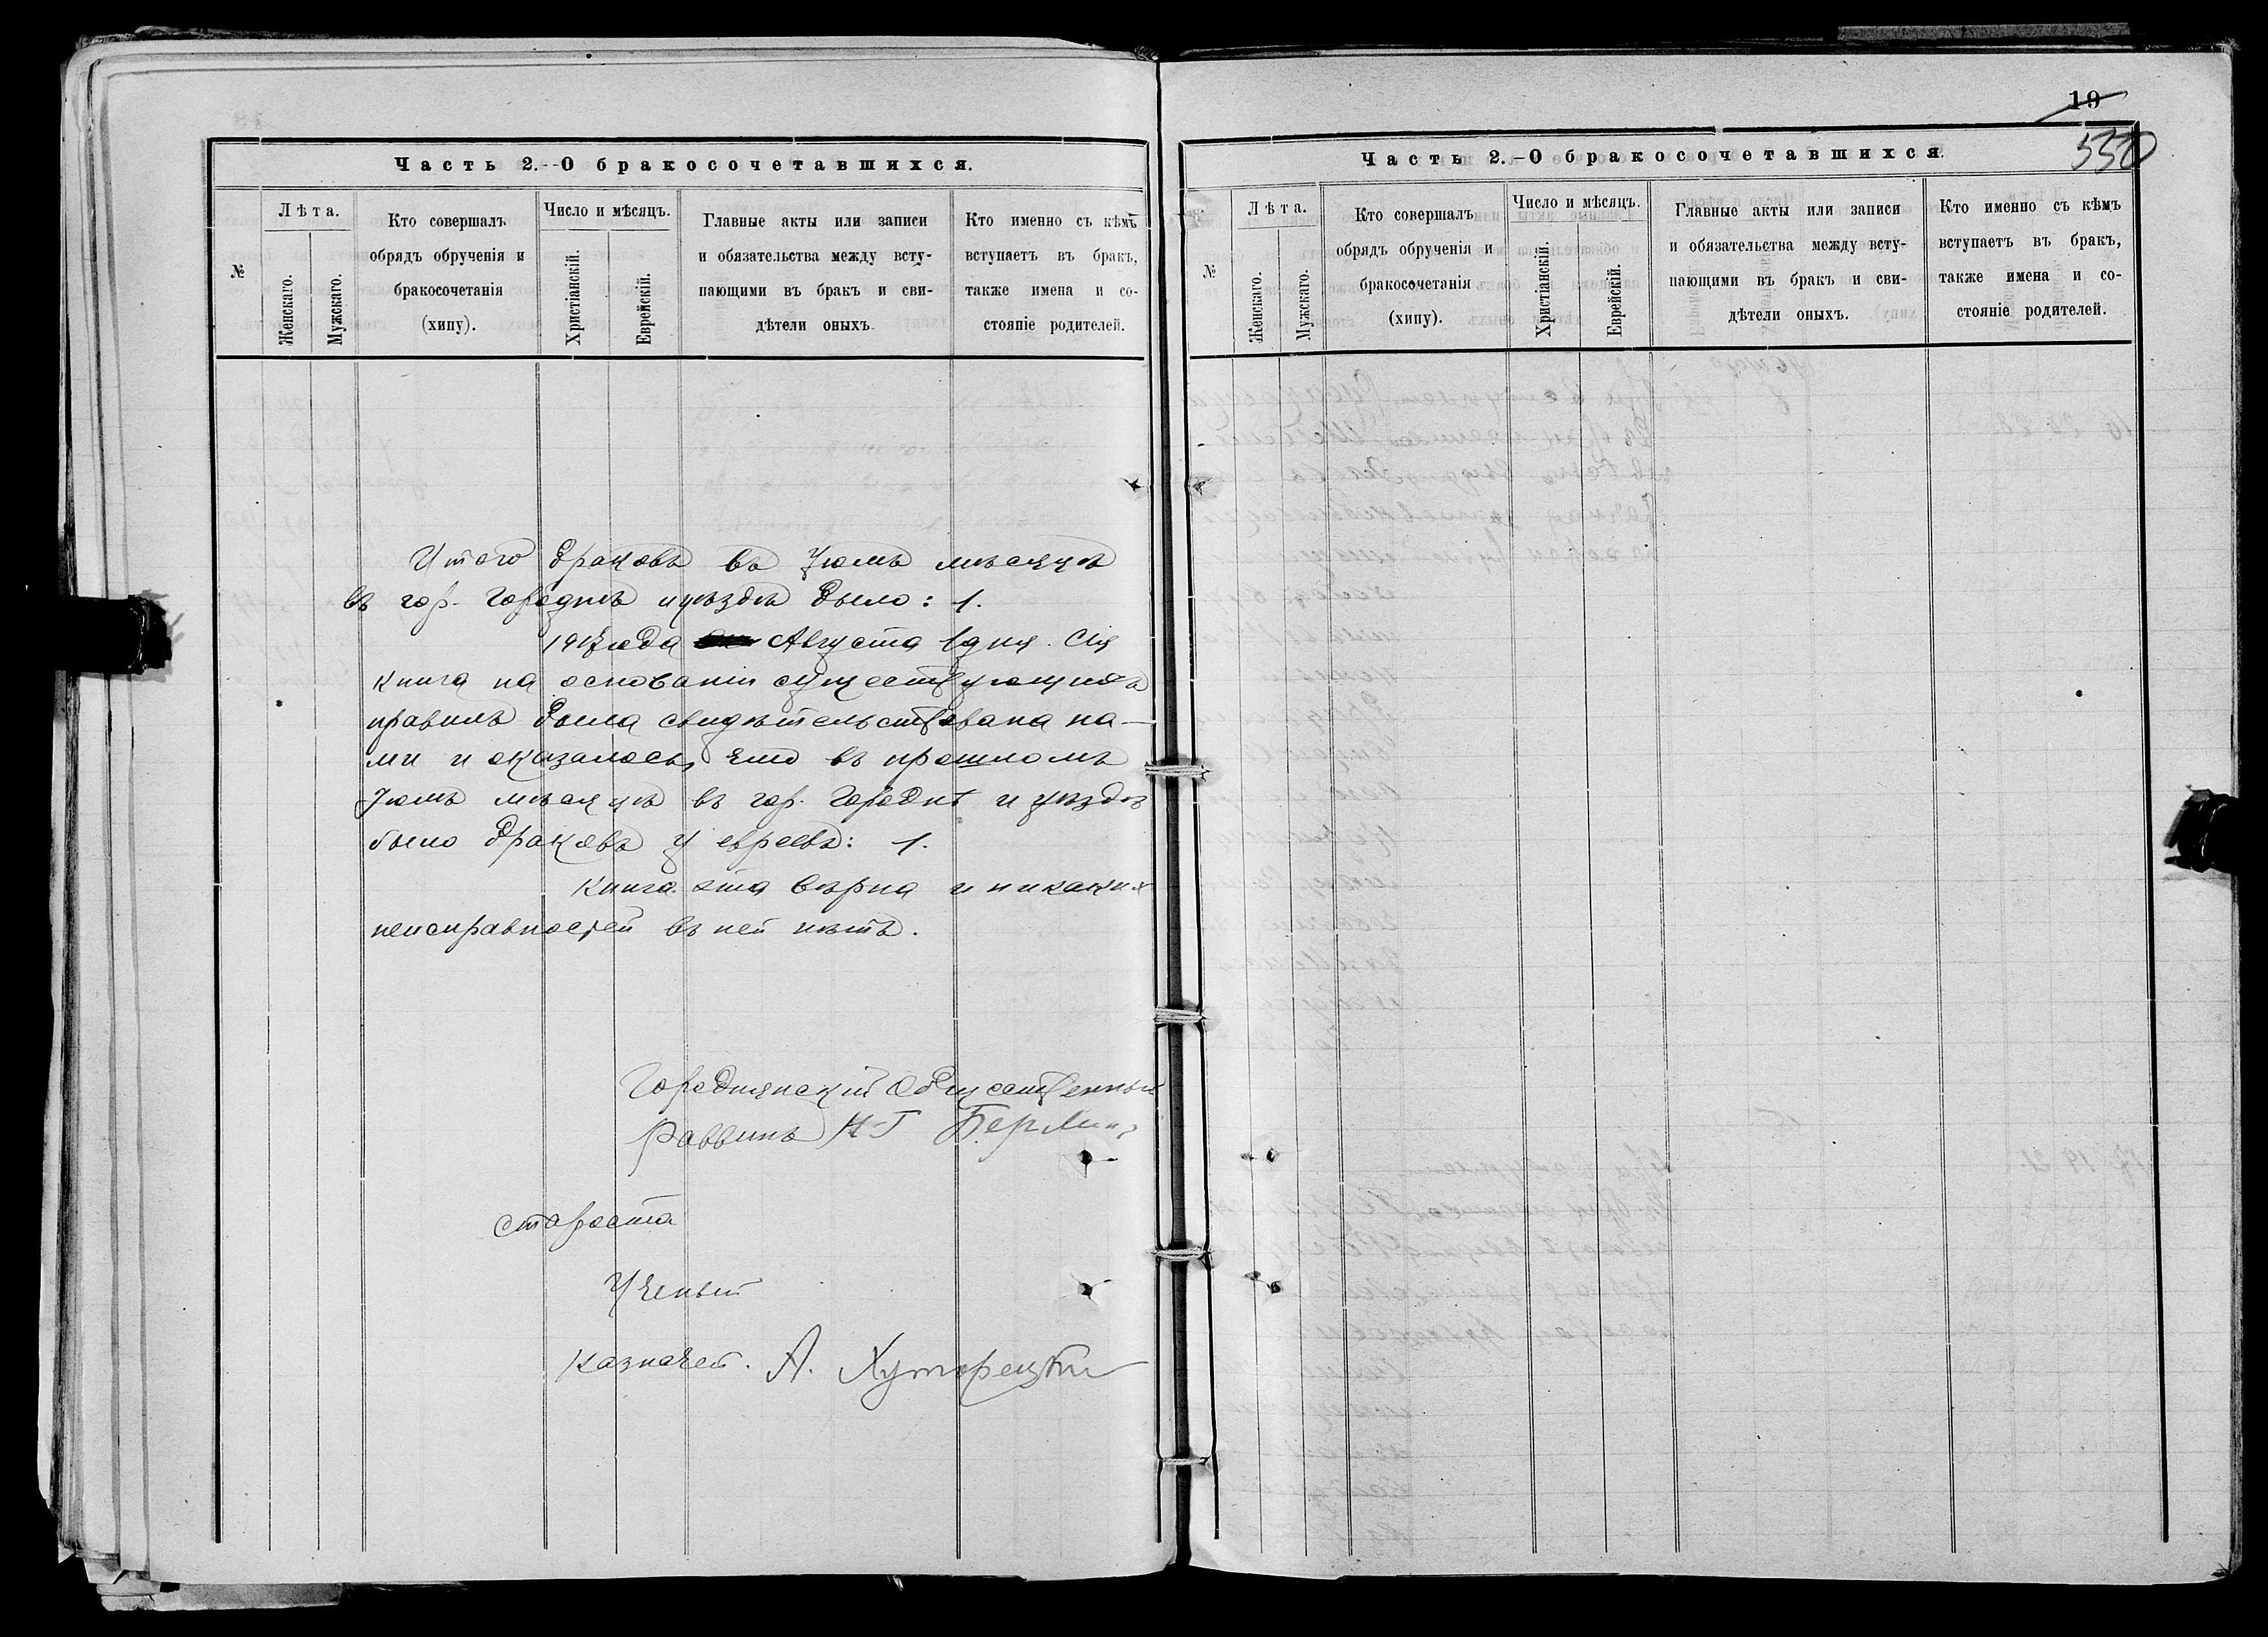 Часть 2.--О бракосочетавшихся.
№
Лѣта.
Женскаго.
Мужскаго.
Кто совершалъ
обрядъ обрученія и
бракосочетанія
(хипу).
Число и мѣсяцъ.
Христіанскій.
Еврейскій.
Главные акты или записи
и обязательства между всту-
пающими въ бракъ и сви-
дѣтели оныхъ.
Кто именно съ кѣмъ
вступаетъ въ бракъ,
также имена и со-
стояніе родителей.
Итого браковъ въ Іюлѣ мѣсяцѣ
въ гор. Городнѣ и уѣздѣ было: 1.
Августа 1 дня. Сія
книга на основаніи существующихъ
правилъ была свидѣтельствована на-
ми и оказалось, что въ прошломъ
Іюлѣ мѣсяцѣ въ гор. Городнѣ и уѣздѣ
было браковъ у евреевъ: 1.
Книга эта вѣрна и никакихъ
неисправностей въ ней нѣтъ.
Городнянскій Общественный
Раввинъ Берлинъ
староста
Ученый
казначей. А. Хуторецкій
19
530
Часть 2.-О бракосочетавшихся.
№
Лѣта.
Женскаго.
Мужскаго.
Кто совершалъ
обрядъ обрученія и
бракосочетанія
(хипу).
Число и мѣсяцъ.
Христіанскій.
Еврейскій.
Главные акты или записи
и обязательства между всту-
пающими въ бракъ и сви-
дѣтели оныхъ.
Кто именно съ кѣмъ
вступаетъ въ бракъ,
также имена и со-
стояніе родителей.